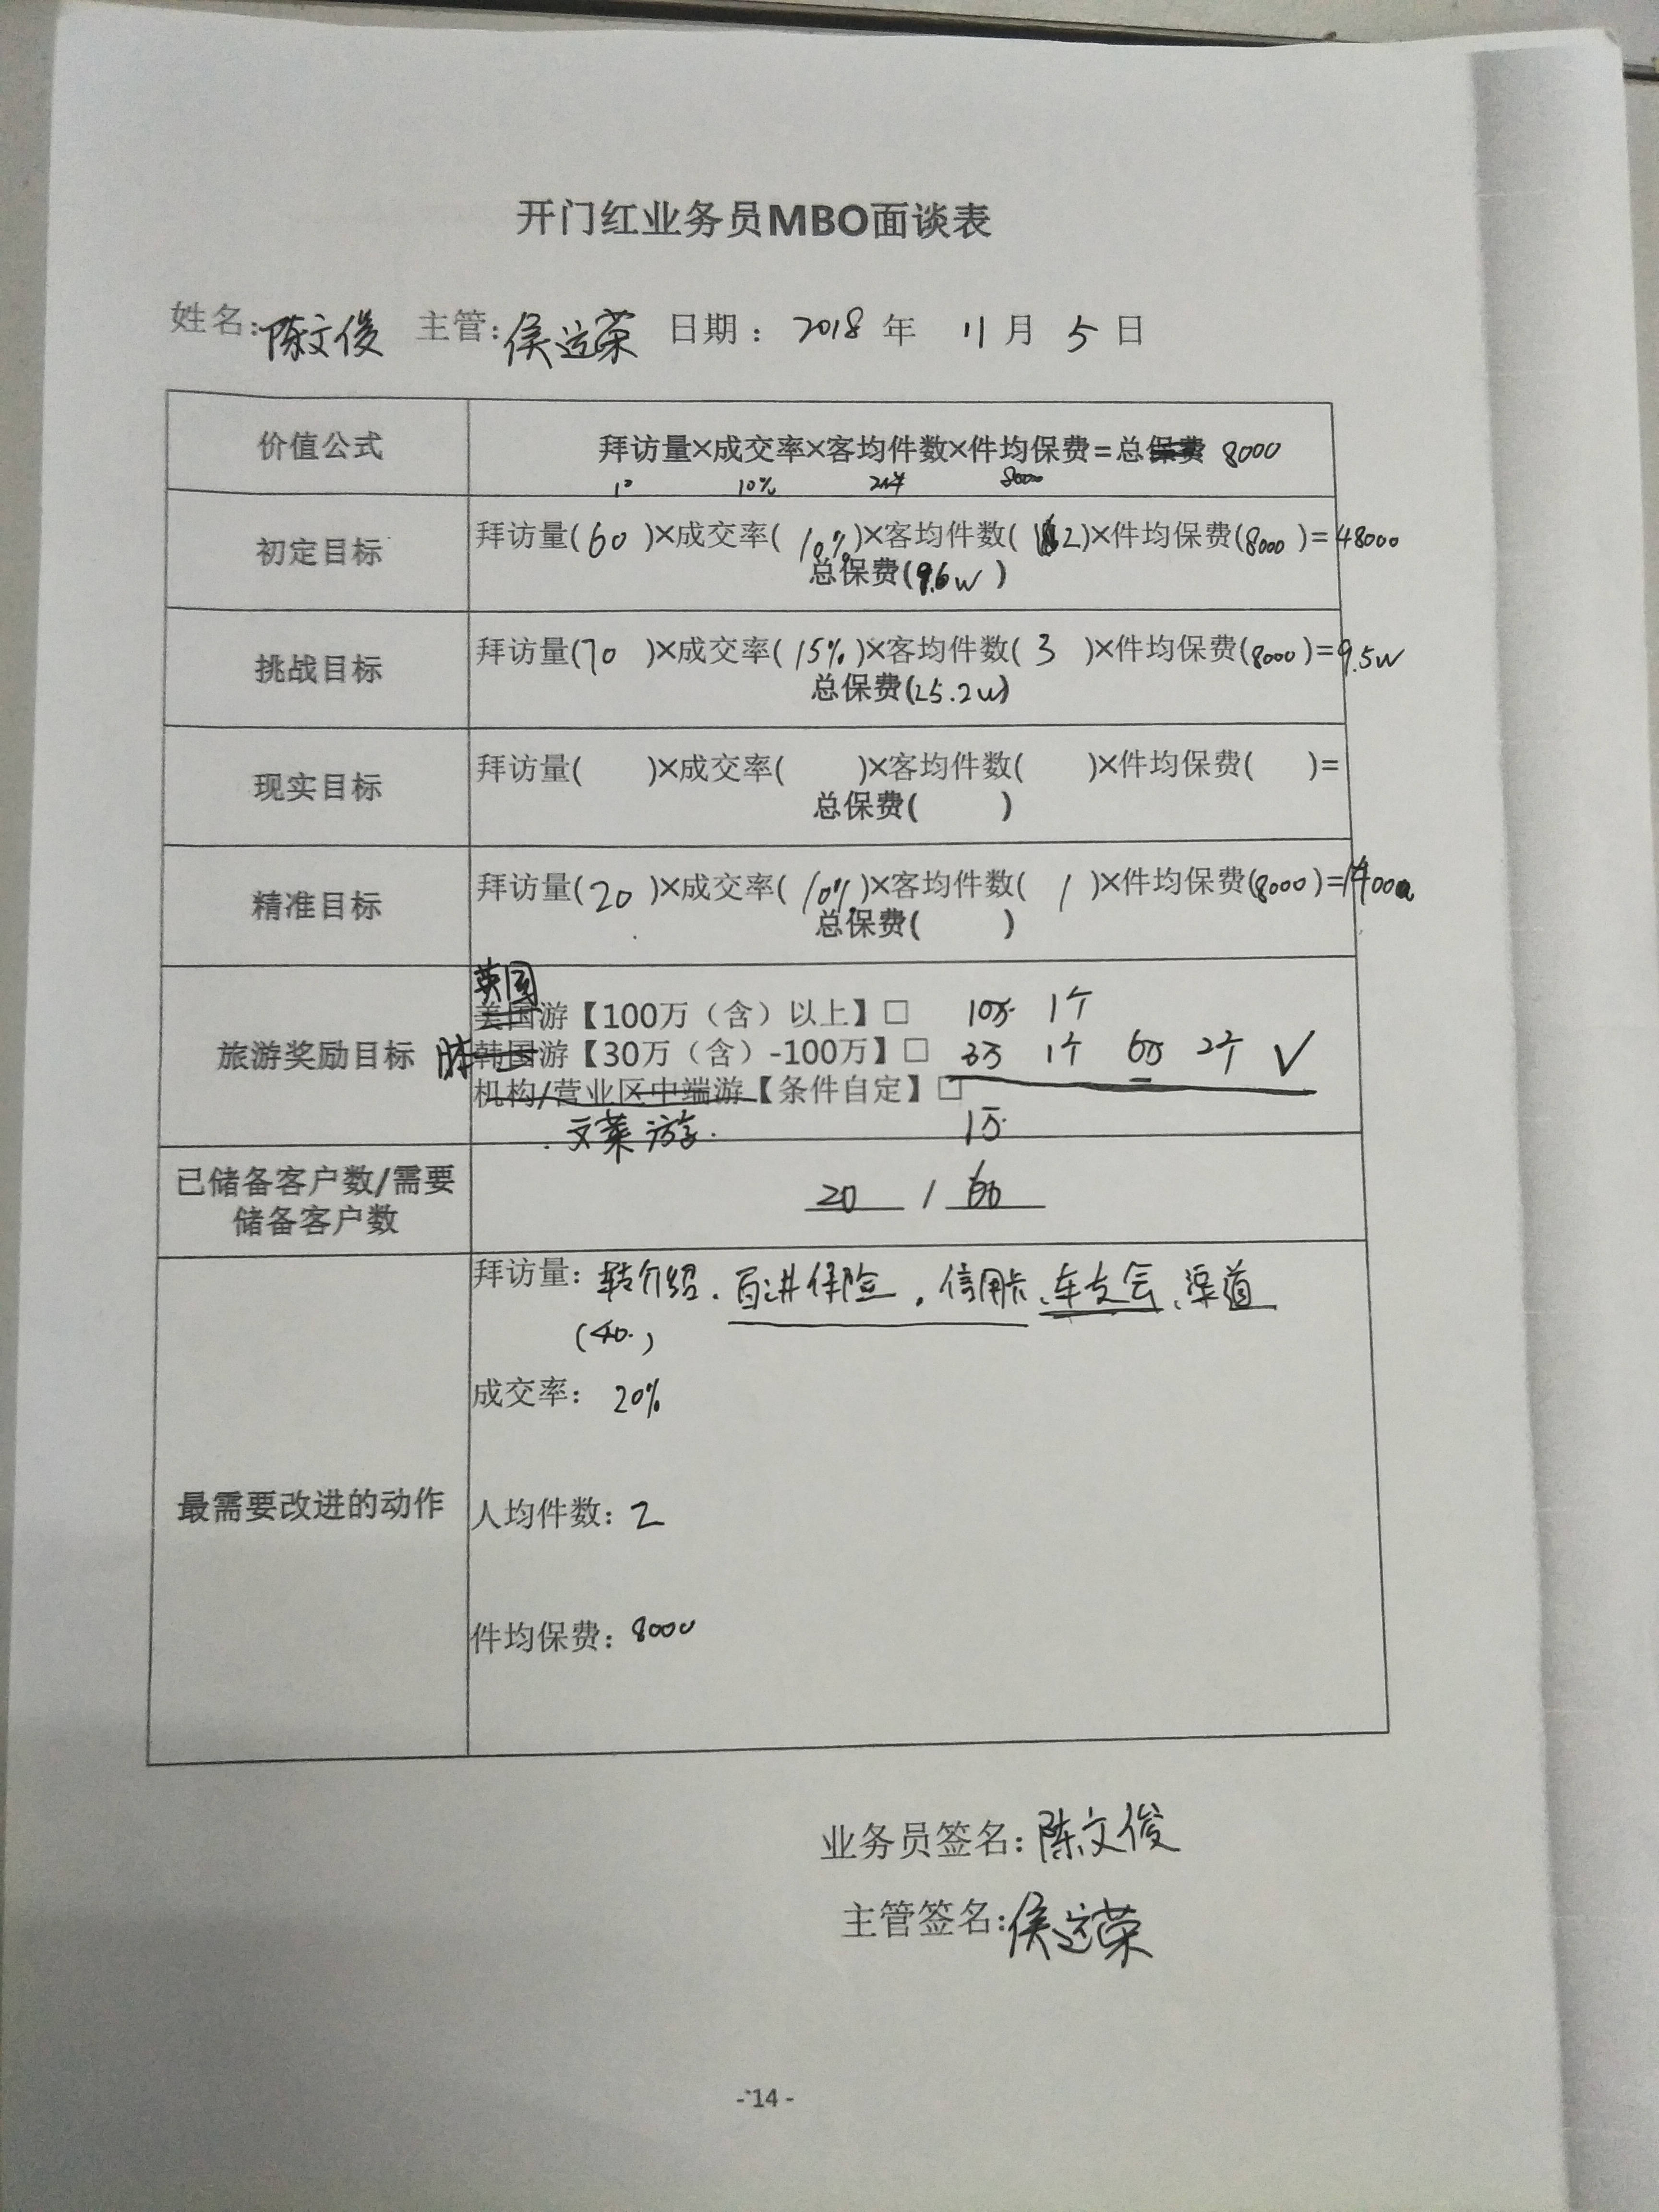 开门红业务员MBO面谈表
姓名:陈文俊 主管:侯运荣 日期: 2018 年 11 月 5 日
价值公式
拜访量×成交率×客均件数×件均保费=总保费 8000
10 10% 8000
初定目标
拜访量(60 )×成交率(10%)×客均件数( 2)×件均保费(8000 )=48000
总保费(9.6w )
挑战目标
拜访量(70 )×成交率(15%)×客均件数( 3 )×件均保费(8000 )=9.5w
总保费(25.2w)
现实目标
拜访量( )×成交率( )×客均件数( )×件均保费( )=
总保费( )
精准目标
拜访量(20 )×成交率(10%)×客均件数( 1 )×件均保费(8000 )=
总保费( )
旅游奖励目标
英国
美国游【100万（含）以上】□ 10万 1个
韩国游【30万（含）-100万】□ 3万 1个 6万 2个 √
机构/营业区中端游【条件自定】□
文莱游. 1万
已储备客户数/需要
储备客户数
20 / 60
最需要改进的动作
拜访量: 转介绍、百进保险、信用卡、车友会、渠道
(40.)
成交率: 20%
人均件数: 2
件均保费: 8000
业务员签名:陈文俊
主管签名:侯运荣
-14-